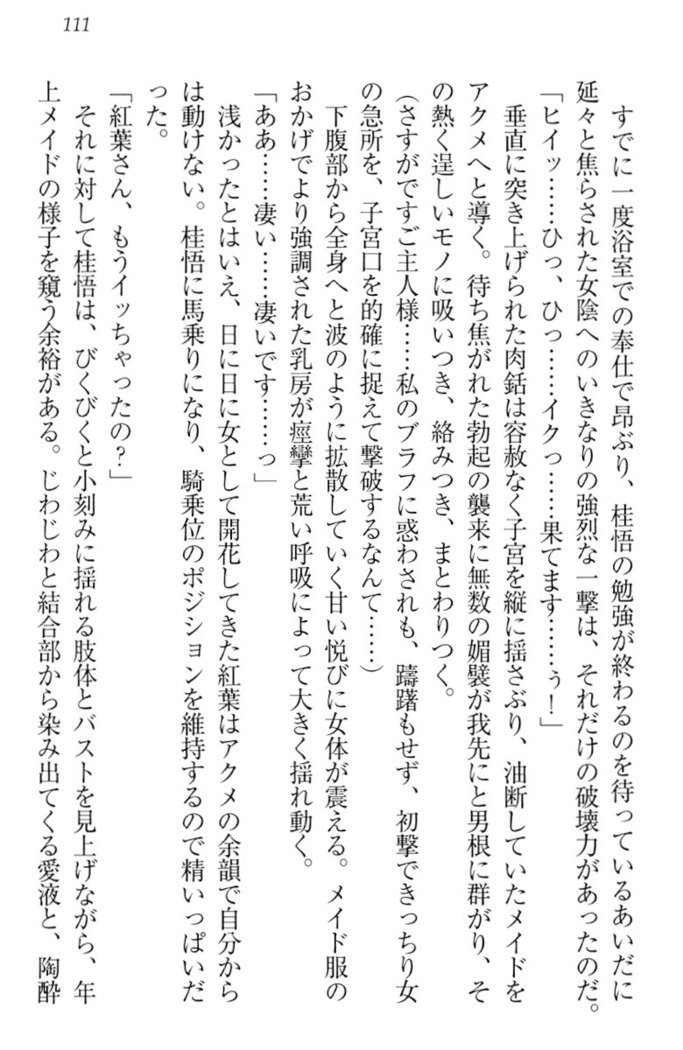 111
すでに一度浴室での奉仕で昂ぶり、桂悟の勉強が終わるのを待っているあいだに
延々と焦らされた女陰へのいきなりの強烈な一撃は、それだけの破壊力があったのだ。
「ヒイッ……ひっ、ひっ……イクっ……果てます……ぅ！」
垂直に突き上げられた肉銛は容赦なく子宮を縦に揺さぶり、油断していたメイドを
アクメへと導く。待ち焦がれた勃起の襲来に無数の媚襞が我先にと男根に群がり、そ
の熱く逞しいモノに吸いつき、絡みつき、まとわりつく。
（さすがですご主人様……私のブラフに惑わされも、躊躇もせず、初撃できっちり女
の急所を、子宮口を的確に捉えて撃破するなんて……）
下腹部から全身へと波のように拡散していく甘い悦びに女体が震える。メイド服の
おかげでより強調された乳房が痙攣と荒い呼吸によって大きく揺れ動く。
「ああ……凄い……凄いです……っ」
浅かったとはいえ、日に日に女として開花してきた紅葉はアクメの余韻で自分から
は動けない。桂悟に馬乗りになり、騎乗位のポジションを維持するので精いっぱいだ
った。
「紅葉さん、もうイッちゃったの？」
それに対して桂悟は、びくびくと小刻みに揺れる肢体とバストを見上げながら、年
上メイドの様子を窺う余裕がある。じわじわと結合部から染み出てくる愛液と、陶酔